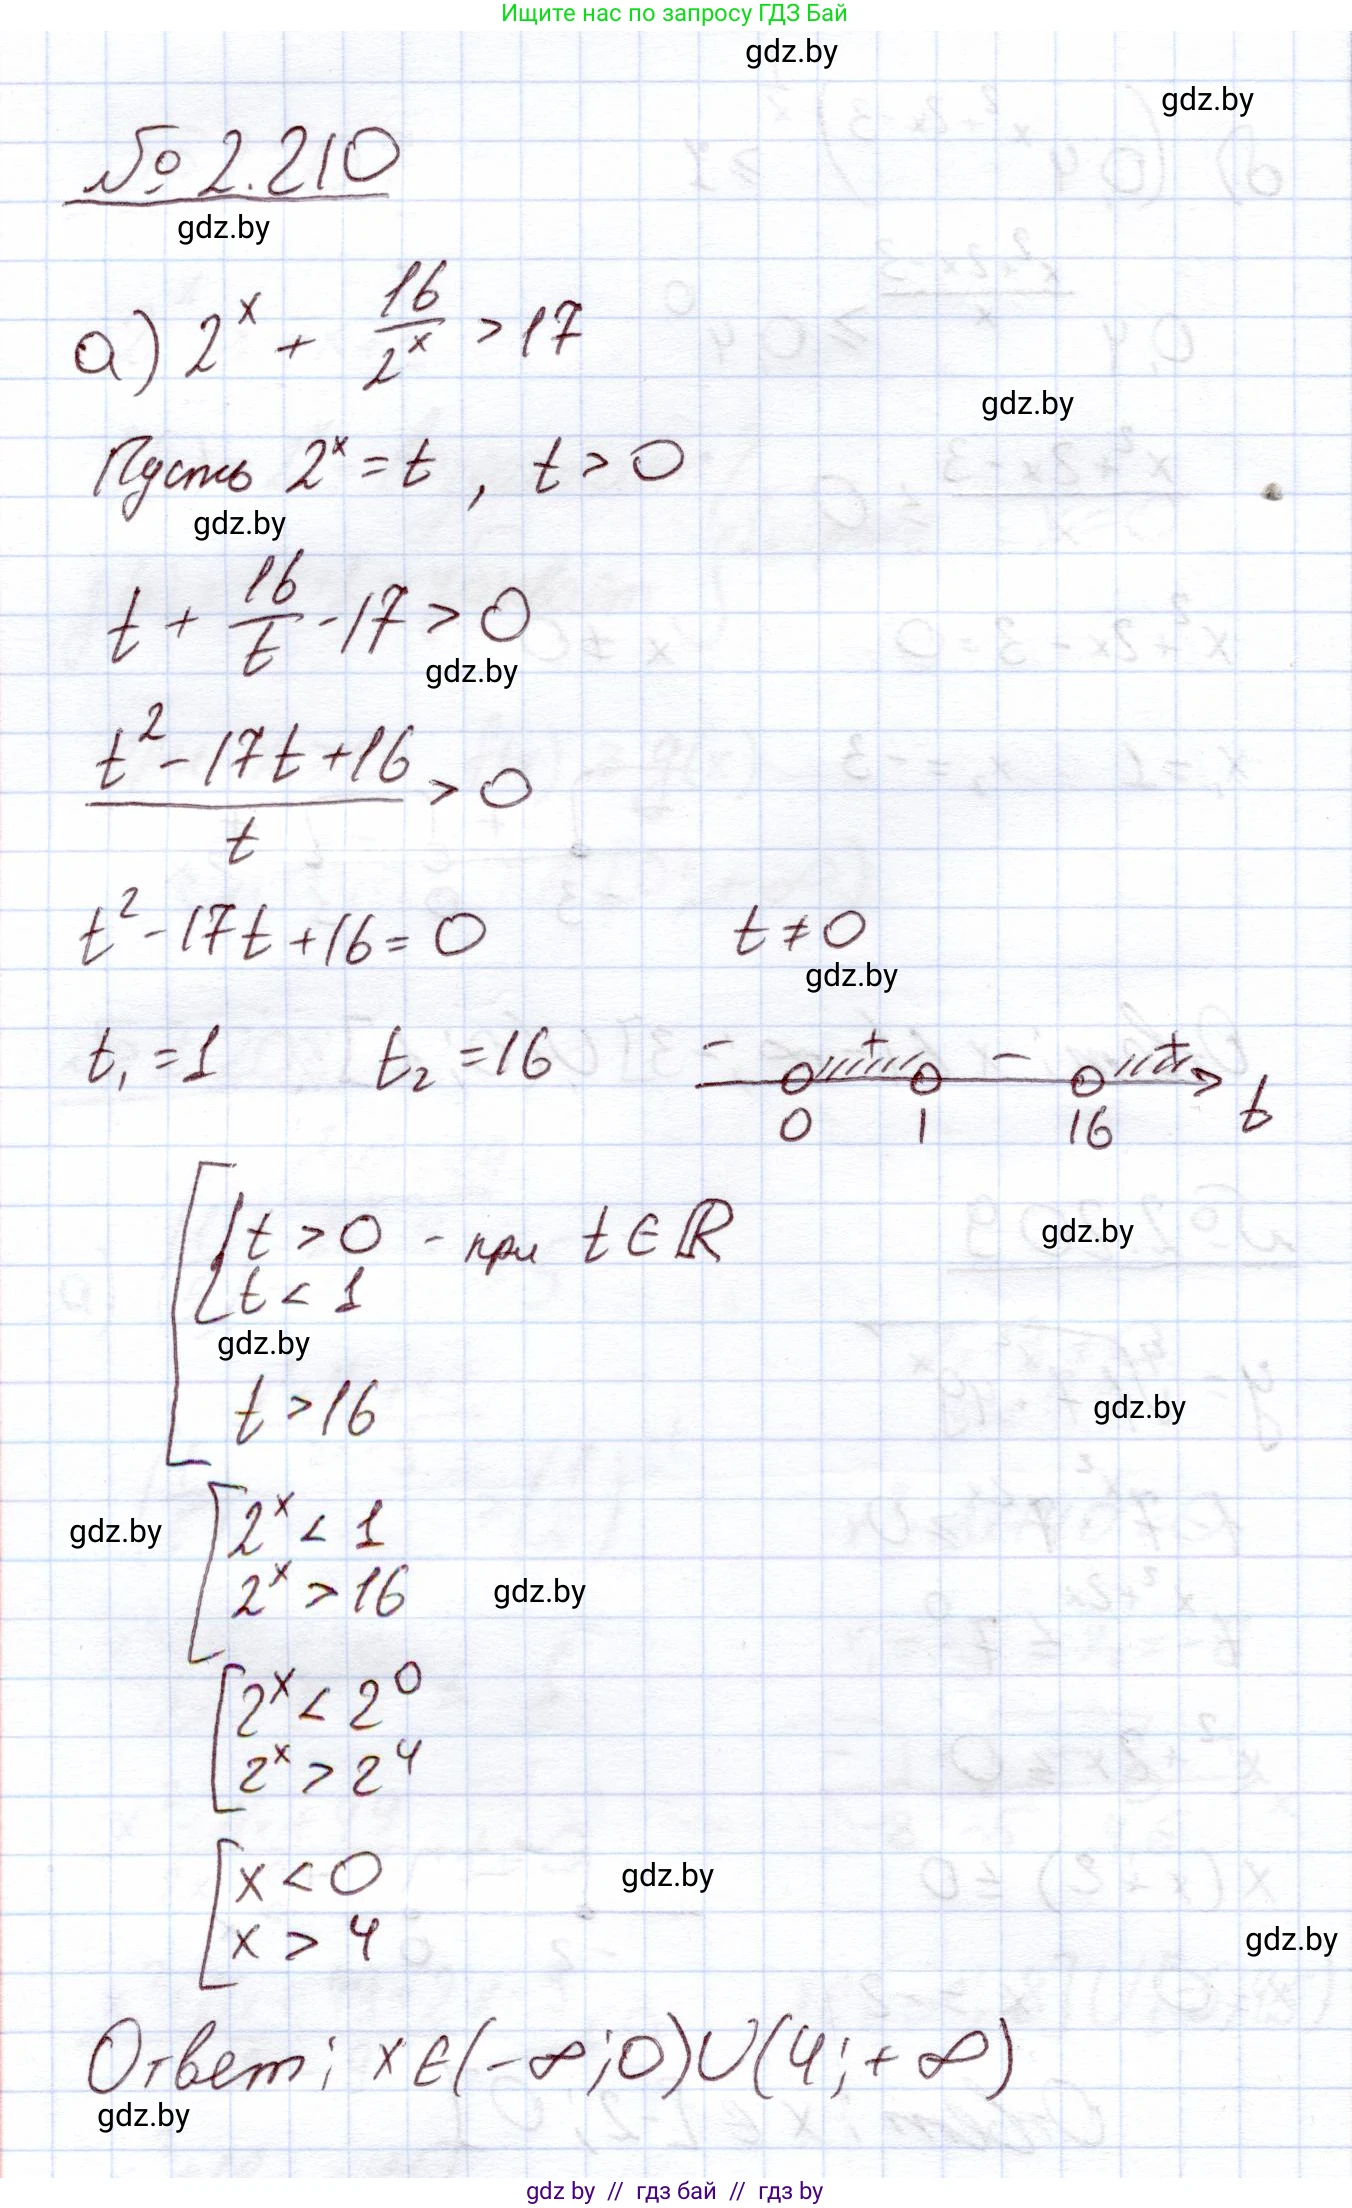 Ищите нас по запросу ГДЗ Бай
gdz.by
gdz.by
№ 2.210
gdz.by
а) 2^x + 16/2^x > 17
gdz.by
Пусть 2^x = t , t > 0
gdz.by
t + 16/t - 17 > 0
gdz.by
(t² - 17t + 16)/t > 0
t² - 17t + 16 = 0 t ≠ 0
gdz.by
t₁ = 1 t₂ = 16 - + - + t
0 1 16
t > 0 - при t ∈ ℝ
gdz.by
t < 1
gdz.by
t > 16
gdz.by
2^x < 1
gdz.by
2^x > 16
gdz.by
2^x < 2^0
2^x > 2^4
x < 0
gdz.by
x > 4
gdz.by
Ответ: x ∈ (-∞; 0) ∪ (4; +∞)
gdz.by
gdz by // гдз бай // gdz by